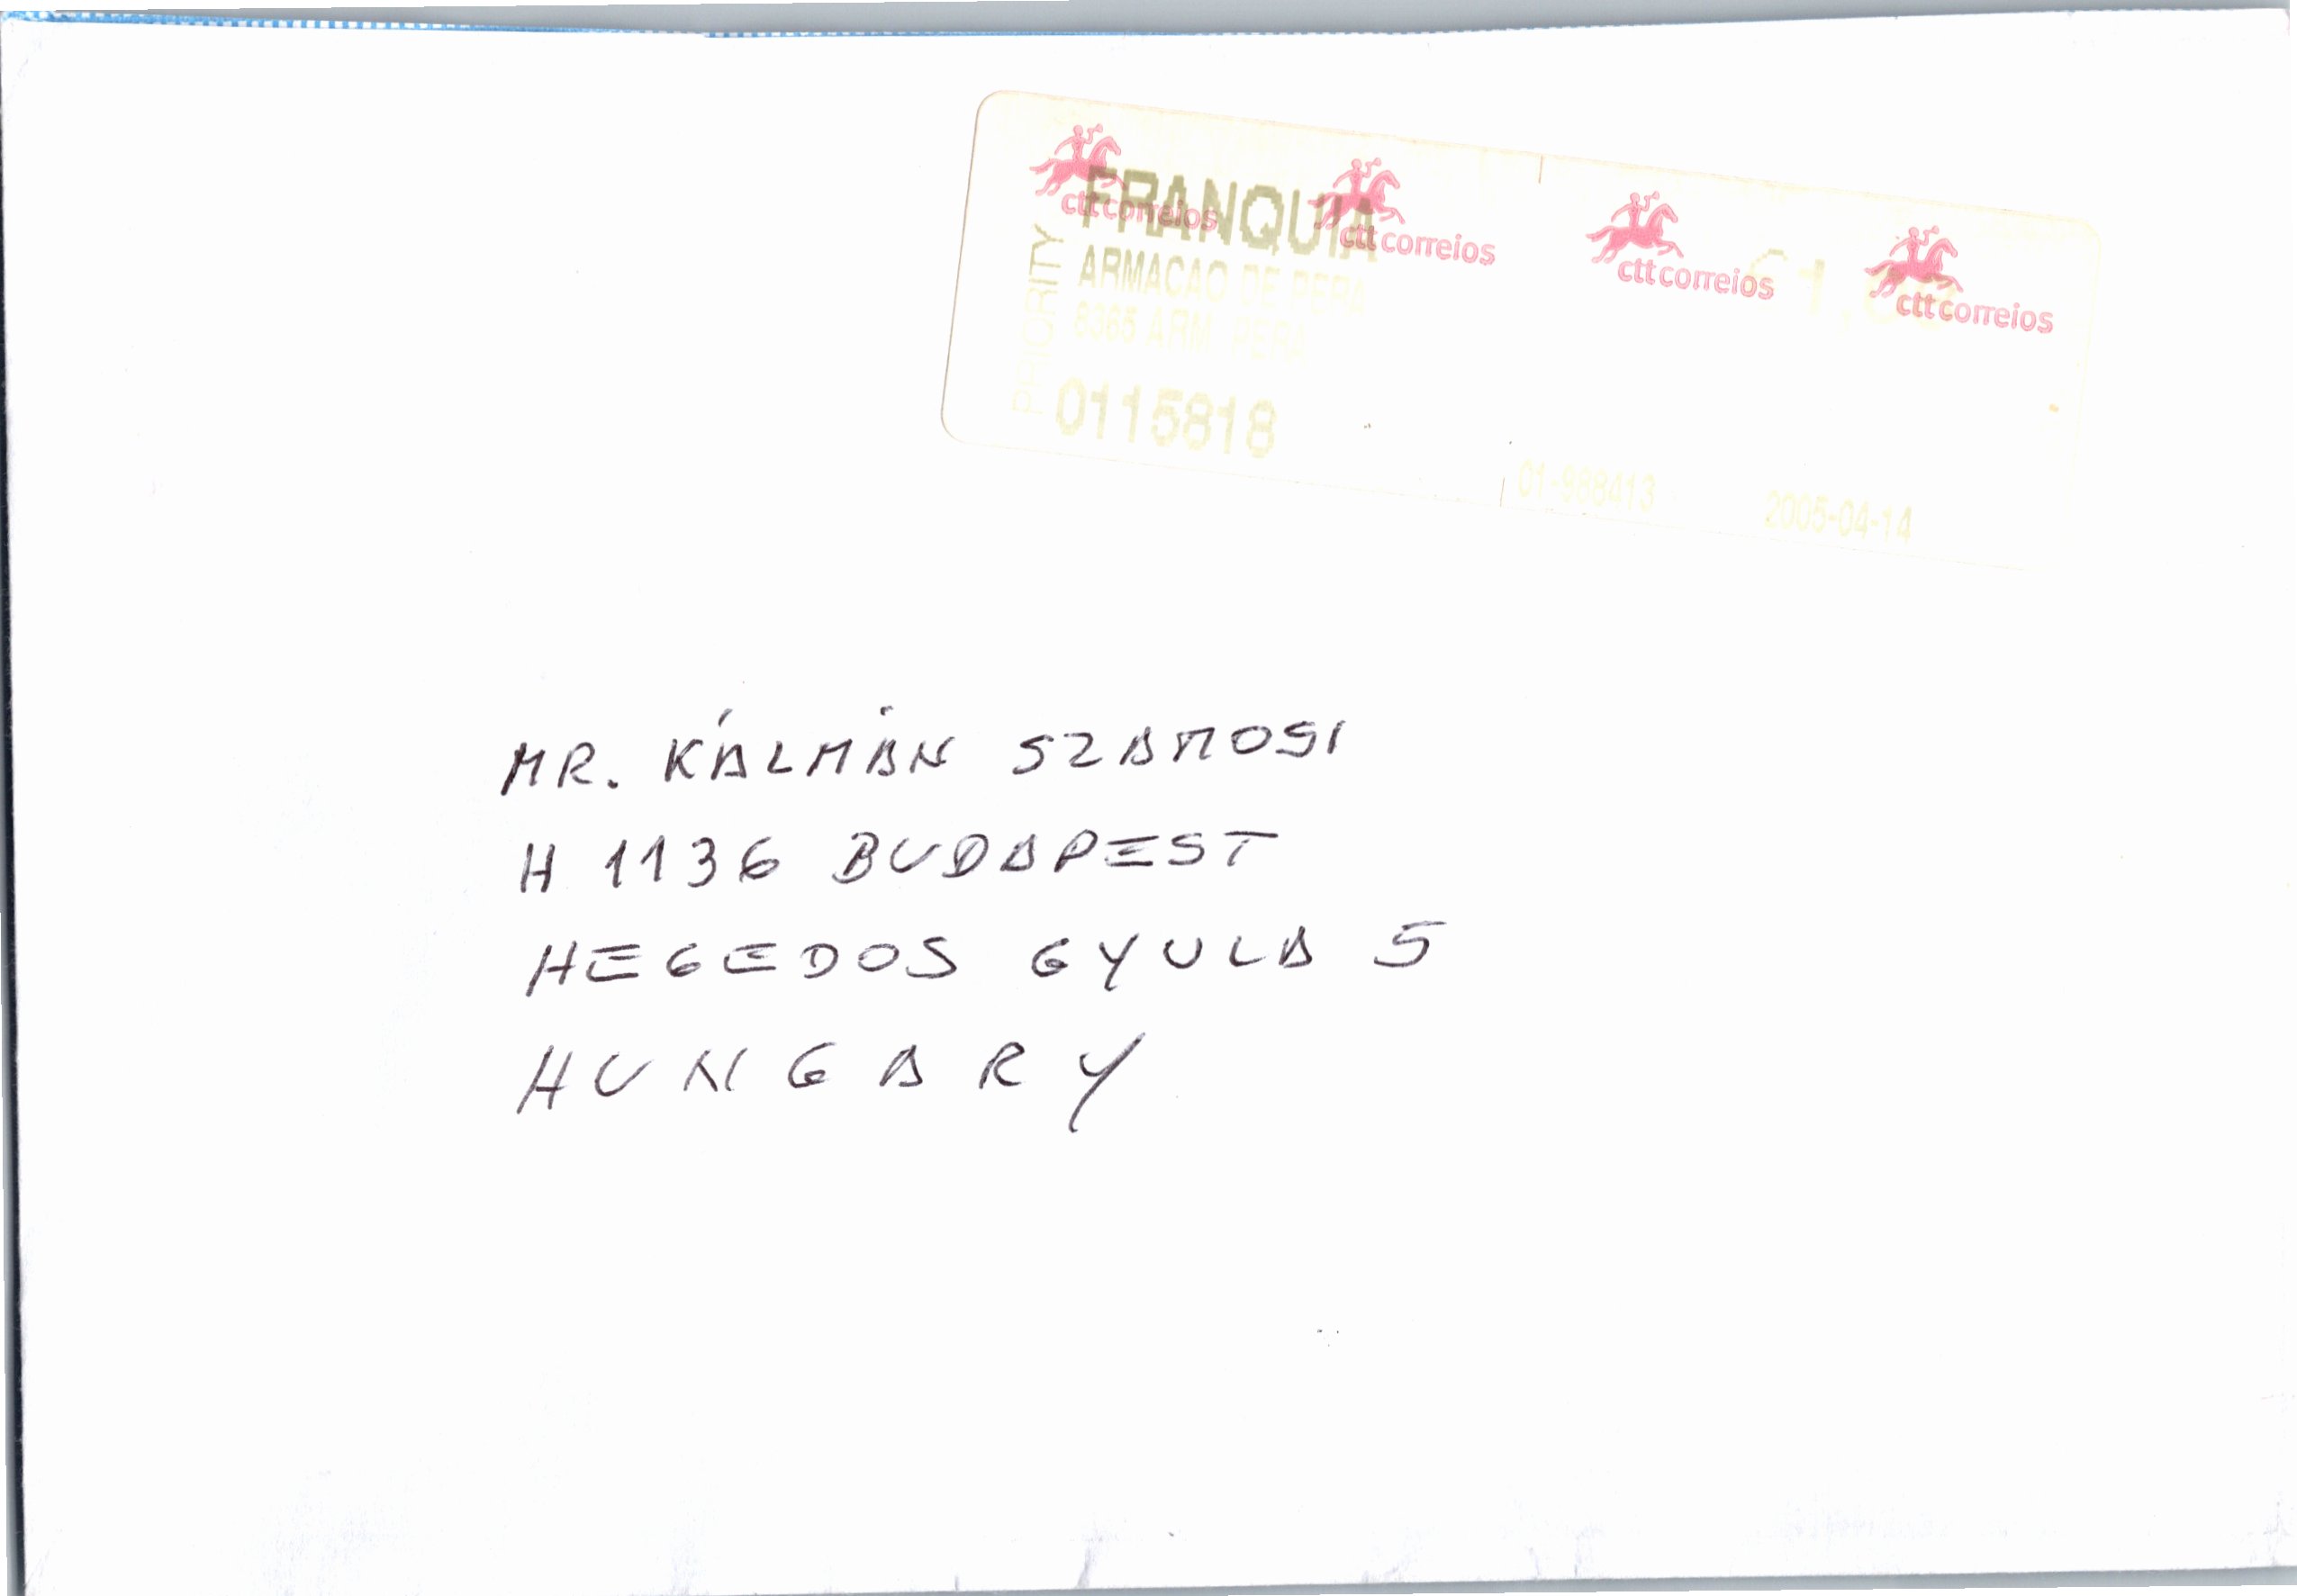 PRIORITY
FRANQUIA
ARMACAO DE PERA
8365 ARM. PERA
0115818
ctt correios
ctt correios
ctt correios
ctt correios
01-988413
2005-04-14
MR. KÁLMÁN SZAMOSI
H 1136 BUDAPEST
HEGEDOS GYULA 5
HUNGARY